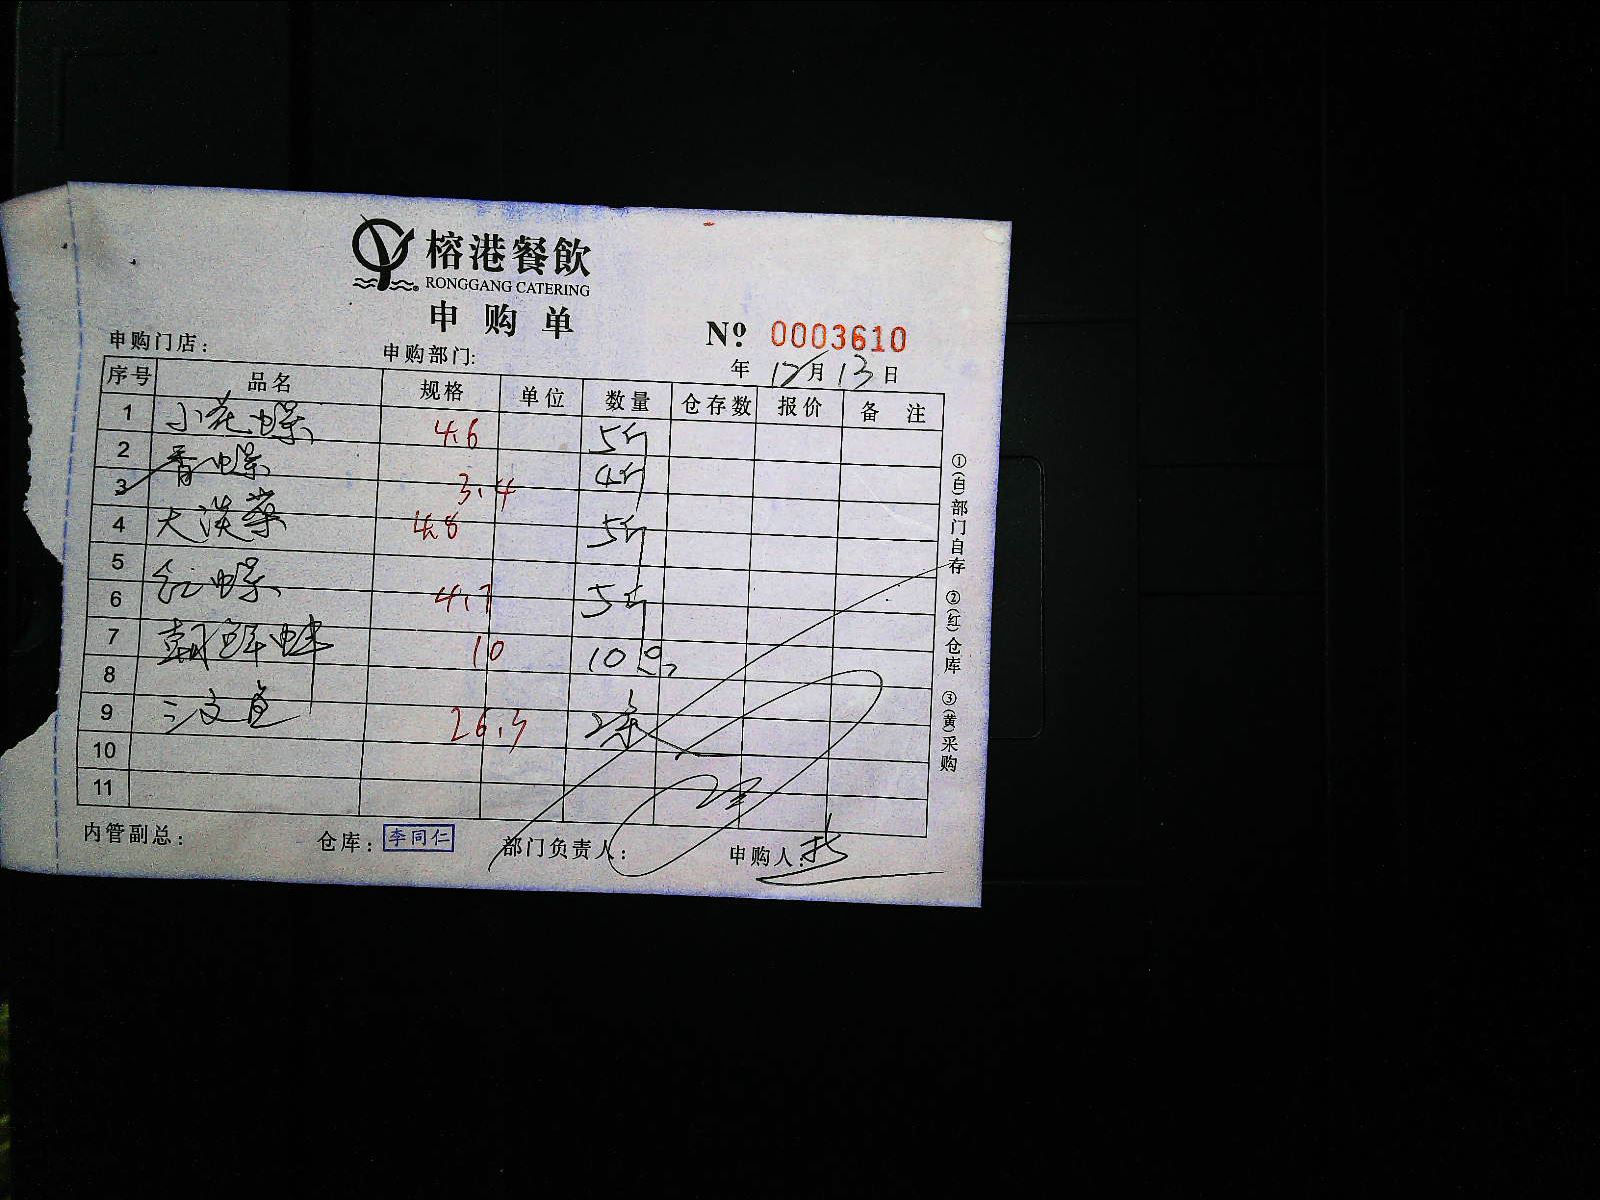 榕港餐飲
RONGGANG CATERING
申购单
Nº 0003610
申购门店: 申购部门: 年 12月13日
序号 品名 规格 单位 数量 仓存数 报价 备注
1 小花螺 4.6 5斤
2 香螺 3.4 4斤
3
4 大淡菜 4.8 5斤
5 红螺 4.7 5斤
6
7 朝鲜蚌 10 10只
8
9 三文鱼 26.5 2条
10
11
内管副总: 仓库: 李同仁 部门负责人: 申购人:
①(白)部门自存 ②(红)仓库 ③(黄)采购